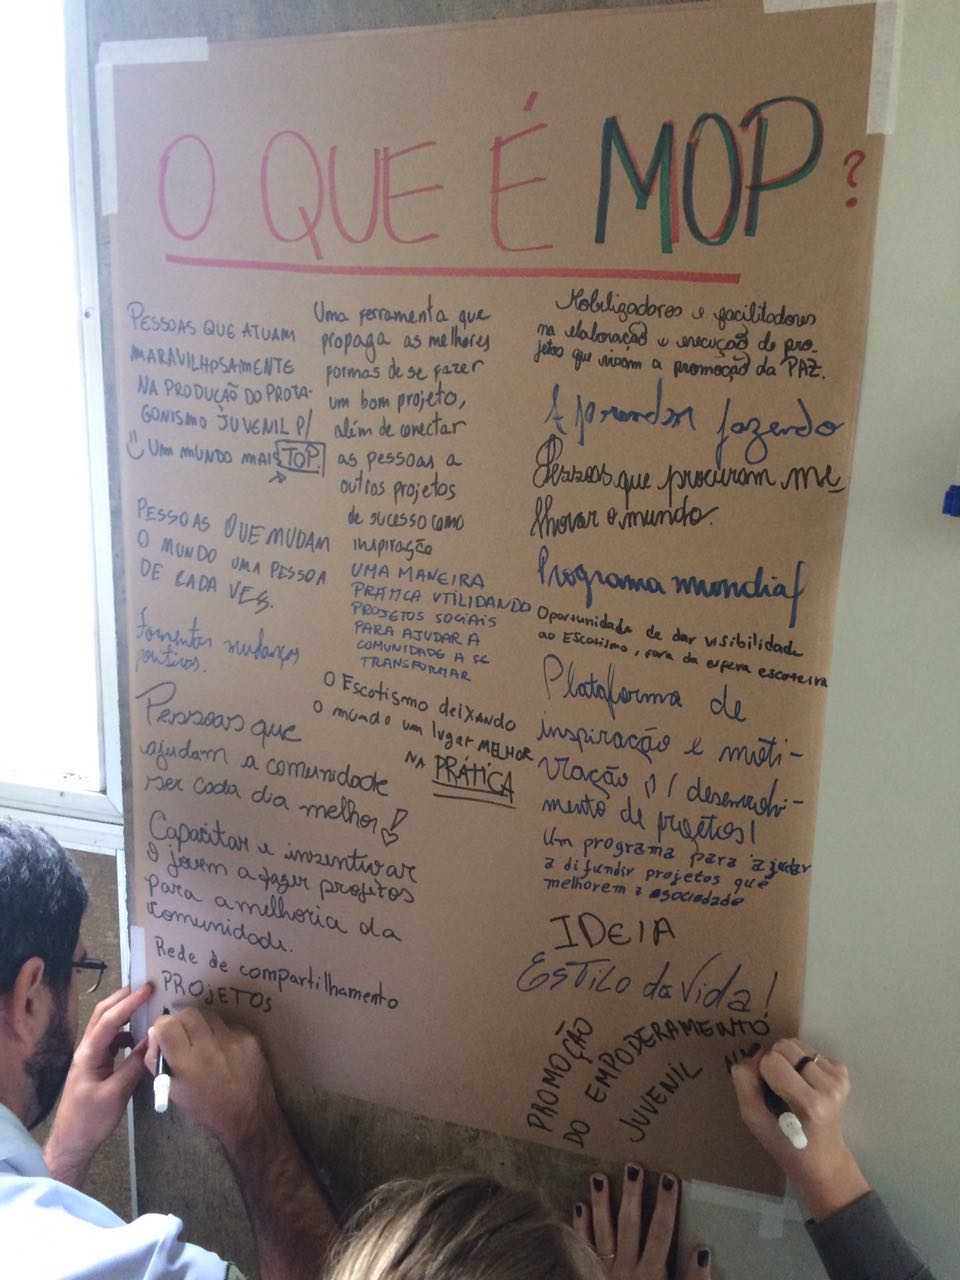 O QUE É MOP?
PESSOAS QUE ATUAM
MARAVILHOSAMENTE
NA PRODUÇÃO DO PROTA-
GONISMO JUVENIL P/
UM MUNDO MAIS TOP.
PESSOAS QUE MUDAM
O MUNDO UMA PESSOA
DE CADA VES.
Fomentar mudanças
positivas.
Pessoas que
ajudam a comunidade
ser cada dia melhor!
Capacitar e insentivar
o jovem a fazer projetos
para a melhoria da
comunidade.
Rede de compartilhamento
PROJETOS
Uma ferramenta que
propaga as melhores
formas de se fazer
um bom projeto,
além de conectar
as pessoas a
outros projetos
de sucesso como
inspiração
UMA MANEIRA
PRÁTICA UTILIDANDO
PROJETOS SOCIAIS
PARA AJUDAR A
COMUNIDADE A SE
TRANSFORMAR
O Escotismo deixando
o mundo um lugar MELHOR
NA PRÁTICA
Mobilizadores e facilitadores
na elaboração e execução de pro-
jetos que visam a promoção da PAZ.
Aprender fazendo
Pessoas que procuram me-
lhorar o mundo.
Programa mundial
Oportunidade de dar visibilidade
ao Escotismo, fora da esfera escoteira
Plataforma de
inspiração e moti-
vação p/ desenvolvi-
mento de projetos!
Um programa para ajudar
a difundir projetos que
melhorem a sociedade
IDEIA
Estilo de Vida!
PROMOÇÃO
DO EMPODERAMENTO
JUVENIL